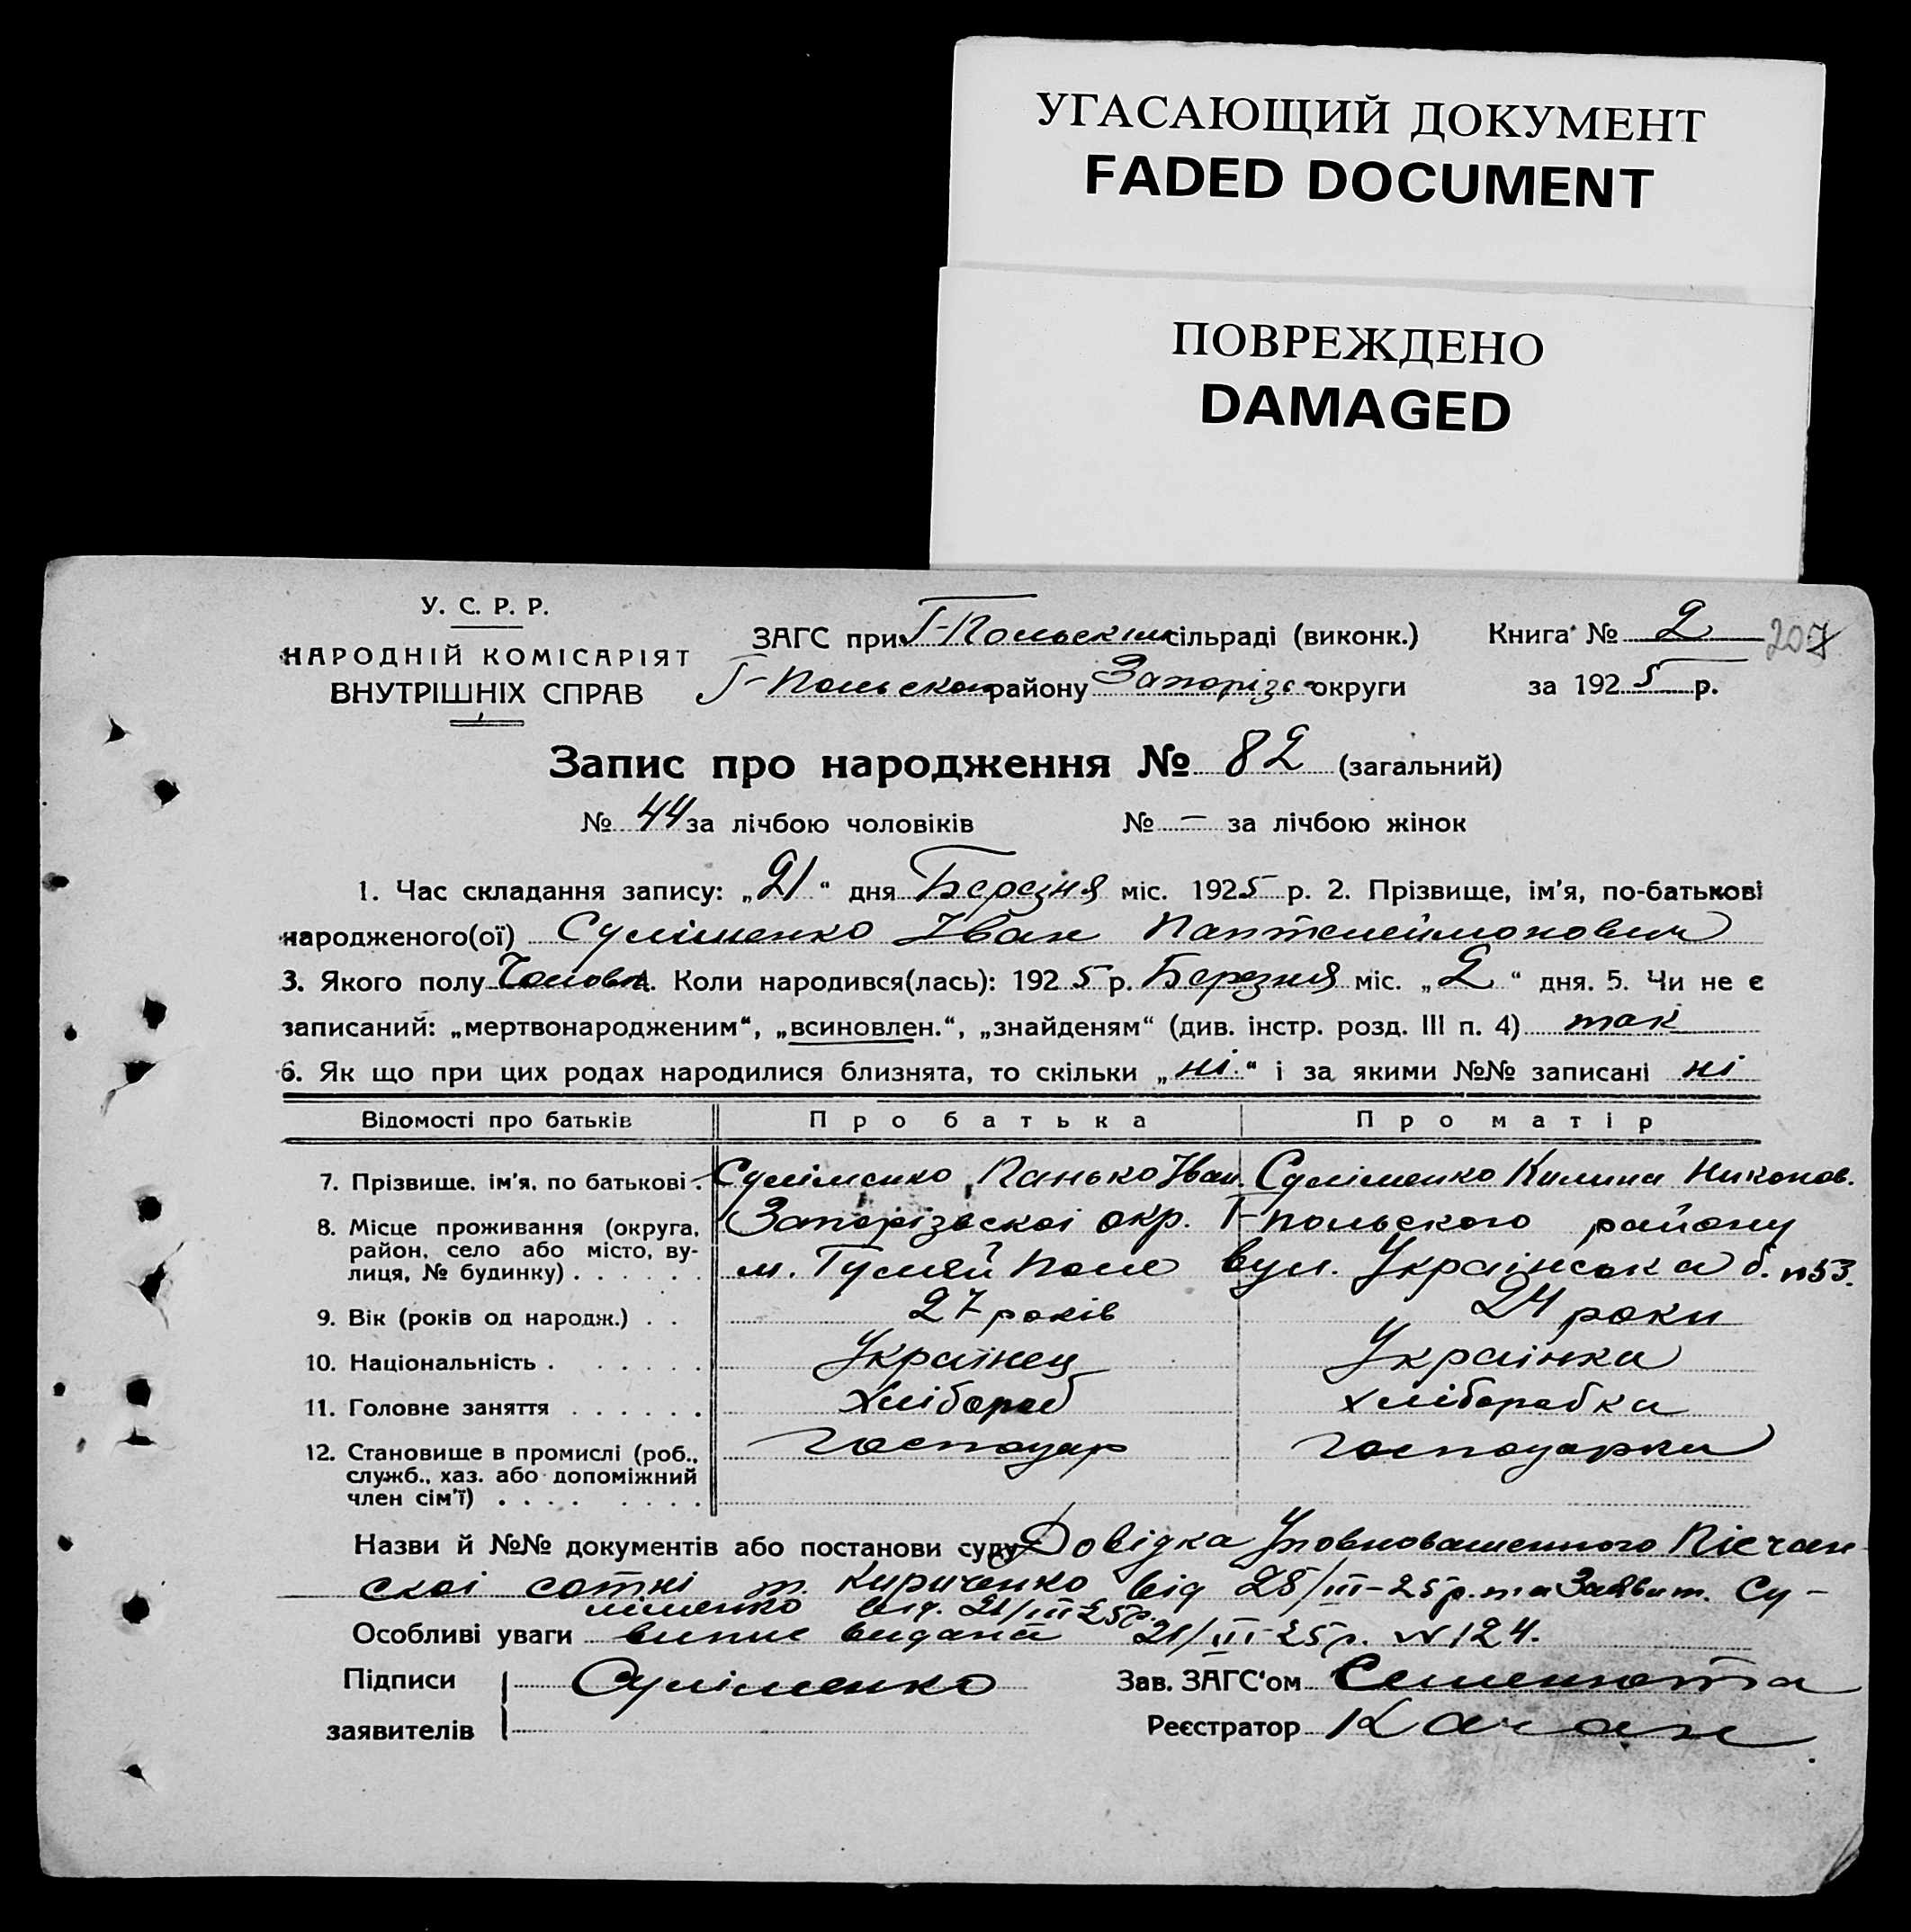 УГАСАЮЩИЙ ДОКУМЕНТ
FADED DOCUMENT
ПОВРЕЖДЕНО
DAMAGED
У. С. Р. Р.
НАРОДНІЙ КОМІСАРІЯТ
ВНУТРІШНІХ СПРАВ
ЗАГС при Г-Польськім сільраді (виконк.)
Г-Польском району Запорізьк округи
Книга № 2 207
за 1925 р.
Запис про народження № 82 (загальний)
№ 44 за лічбою чоловіків № — за лічбою жінок
1. Час складання запису: „21“ дня Березня міс. 1925 р. 2. Прізвище, ім'я, по-батькові
народженого(ої) Суліменко Іван Пантелеймонович
3. Якого полу Чоловк 4. Коли народився(лась): 1925 р. Березня міс. „2“ дня. 5. Чи не є
записаний: „мертвонародженим“, „всиновлен.“, „знайденям“ (див. інстр. розд. III п. 4) так
6. Як що при цих родах народилися близнята, то скільки „ні“ і за якими №№ записані ні
Відомості про батьків Про батька Про матір
7. Прізвище, ім'я, по батькові. Суліменко Панько Іван. Суліменко Килина Никонов.
8. Місце проживання (округа, район, село або місто, вулиця, № будинку) Запорізьскоі окр. Г-польского району
м. Гуляй Поле вул. Українська б. №53.
9. Вік (років од народж.) 27 років 24 роки
10. Національність Українец Українка
11. Головне заняття Хлібороб хлібаробка
12. Становище в промислі (роб., служб., хаз. або допоміжний член сім'ї) Господар господарка
Назви й №№ документів або постанови суду Довідка Уповноваженного Пісчан-
скоі сотні т. Кириченко від 28/III-25р. та Заяви т. Су-
ліменко від. 21/III-25р.
Особливі уваги випис видана 21/III-25р. №124.
Підписи Суліменко Зав. ЗАГС'ом Семенюта
заявителів Реєстратор Качан